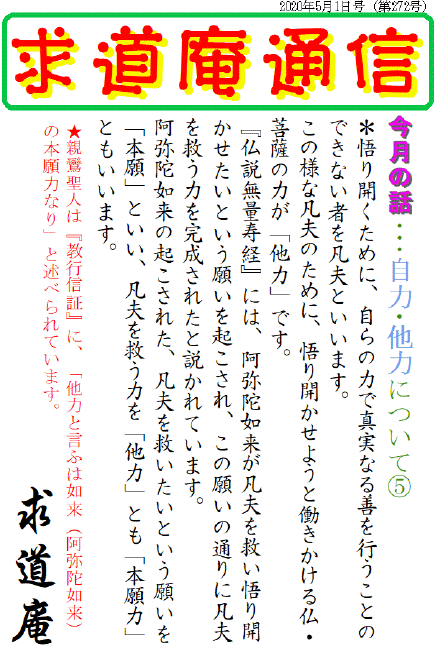 2020年5月1日号（第272号）
求道庵通信
今月の話…自力・他力について⑤
＊悟り開くために、自らの力で真実なる善を行うことの
できない者を凡夫といいます。
この様な凡夫のために、悟り開かせようと働きかける仏・
菩薩の力が「他力」です。
『仏説無量寿経』には、阿弥陀如来が凡夫を救い悟り開
かせたいという願いを起こされ、この願いの通りに凡夫
を救う力を完成されたと説かれています。
阿弥陀如来の起こされた、凡夫を救いたいという願いを
「本願」といい、凡夫を救う力を「他力」とも「本願力」
ともいいます。
★親鸞聖人は『教行信証』に、「他力と言ふは如来（阿弥陀如来）
の本願力なり」と述べられています。
求道庵